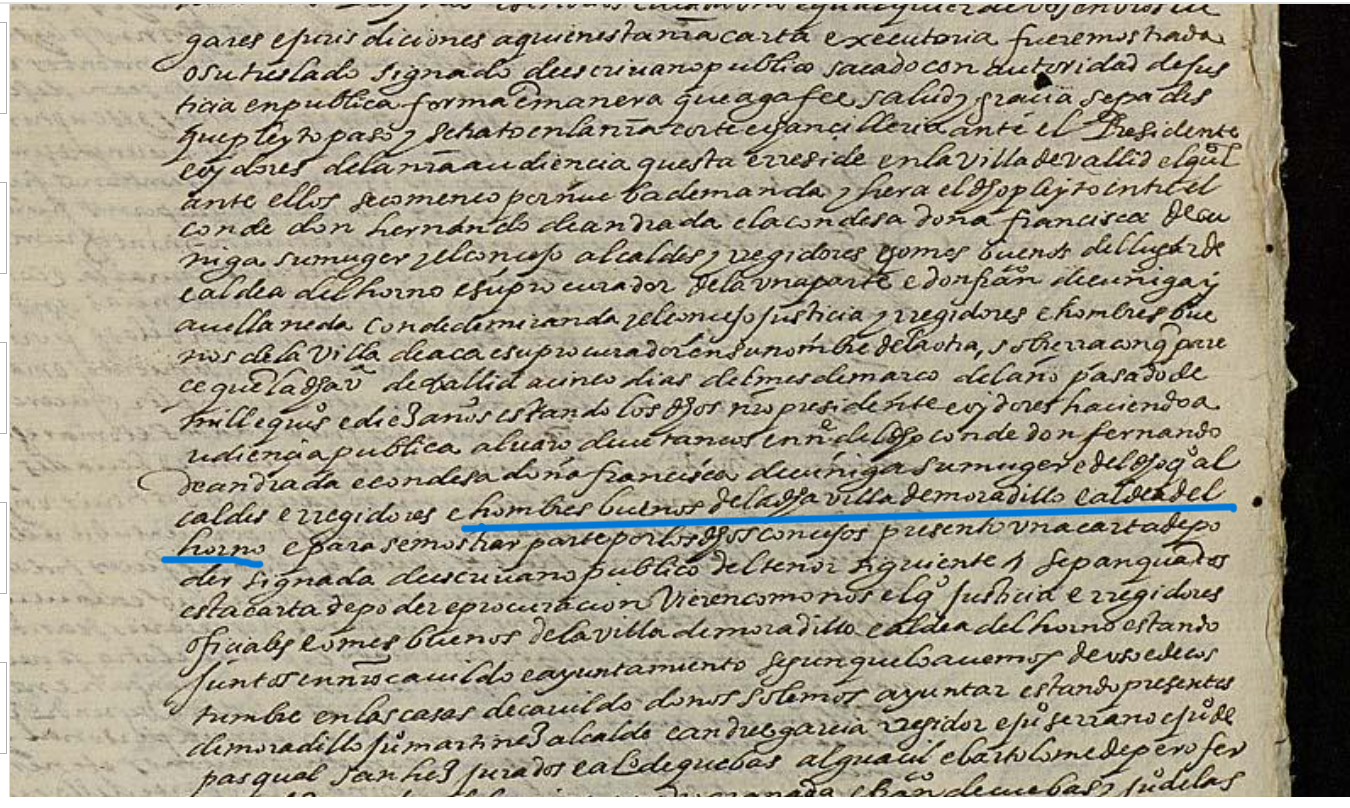 gares e juris diciones a quien esta nra carta executoria fuere mostrada
o su treslado signado de escrivano publico sacado con autoridad de jus
ticia en publica forma e manera que aga fee salud y gracia sepa des
que pleyto paso y se trato en la nra corte e chancilleria ante el Presidente
e oydores de la nra audiencia questa e rreside en la villa de vallid el qual
ante ellos se comenco por nueba demanda y hera el dho pleyto entre el
conde don hernando de andrada e la condesa doña francisca de cu
niga su muger y el concejo alcaldes y regidores e omes buenos del lugar de
e aldea del horno e su procurador de la una parte e don fran de cuñiga y
avellaneda conde de miranda y el concejo justicia y rregidores e hombres bue
nos de la Villa de aca e su procurador en su nombre de la otra, sobre rracon q pare
ce que en la dha va de vallid a cinco dias del mes de março del año pasado de
mill e quis e diez años estando los dhos nro presidente e oydores haciendo a
udiencia publica alvaro de uetancos en ne del dho conde don fernando
de andrada e condesa doña francisca de cuñiga su muger e del dho qo al
caldes e rregidores e hombres buenos de la dha villa de moradillo e aldea del
horno e para se mostrar parte por los dhos concejos presento una carta de po
der signada de escrivano publico del tenor siguiente sepan quantos
esta carta de poder e procuracion Vieren como nos el qo justicia e rregidores
oficiales e omes buenos de la villa de moradillo e aldea del horno estando
juntos en nro cavildo e ayuntamiento segun que lo avemos de uso e de cos
tumbre en las casas de cavildo donos solemos ayuntar estando presentes
de moradillo juo martinez alcalde e andres garcia rregidor e juo serrano e juo de
pasqual sanchez jurados e alo de guebas alguacil e bartolome de pero fer